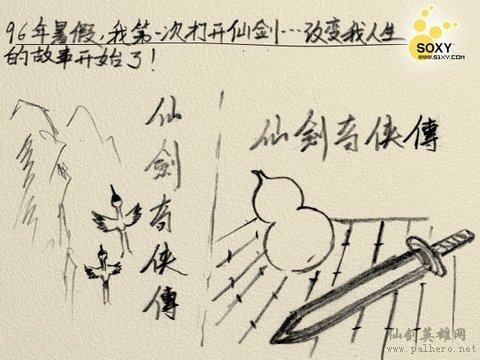 96年暑假,我第一次打开仙剑…改变我人生
的故事开始了!
SOXY
www.51XY.com
仙剑奇侠傳
仙剑奇侠傳
仙剑英雄网
www.palhero.net